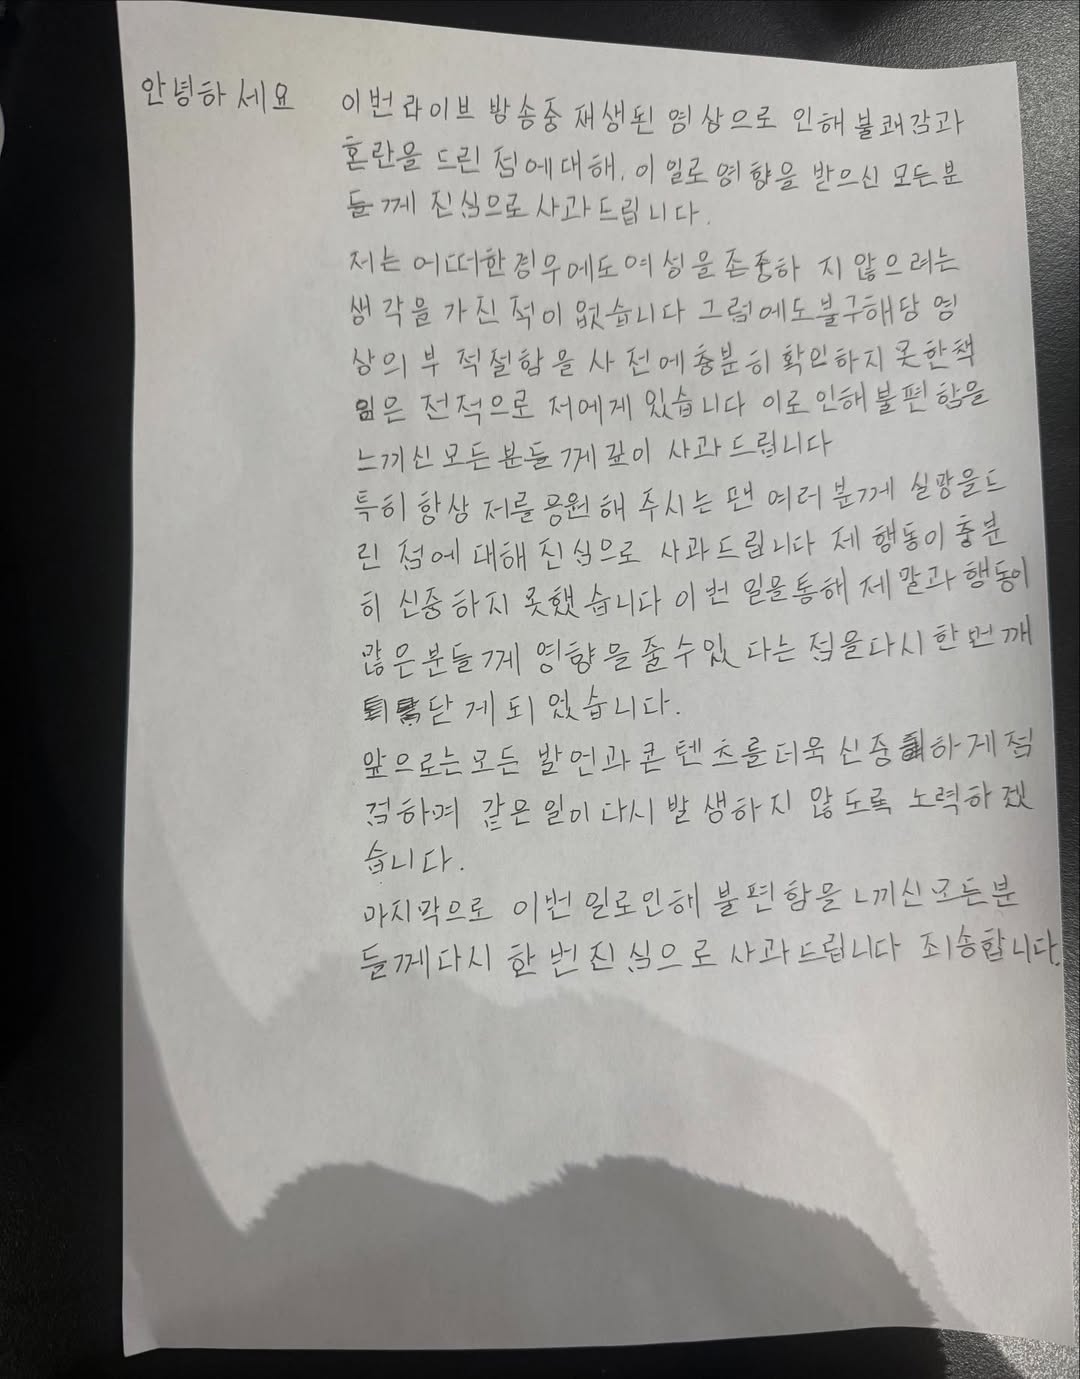 안녕하세요 이번라이브 방송중 재생된 영상으로 인해 불쾌감과
혼란을 드린 점에대해, 이 일로 영향을 받으신 모든분
들께 진심으로 사과드립니다.
저는 어떠한경우에도여성을존중하 지않으려는
생각을 가진 적이 없습니다 그럼에도불구해당 영
상의 부 적절함을 사 전에충분히 확인하지 못한책
임은 전적으로 저에게 있습니다 이로 인해불편함을
느끼신 모든 분들 께 깊이 사과드립니다
특히 항상 저를 응원해 주시는 팬 여러 분께 실망을드
린 점에 대해 진심으로 사과드립니다 제 행동이 충분
히 신중하지 못했습니다 이번 일을통해 제말과 행동이
많은분들께 영향을 줄수있 다는 점을다시 한번 깨
닫게되 었습니다.
앞으로는모든 발언과 콘텐츠를더욱 신중하게점
검하며 같은 일이 다시 발생하지 않도록 노력하겠
습니다.
마지막으로 이번 일로인해 불편함을 느끼신모든분
들께다시 한번진심으로 사과드립니다 죄송합니다.